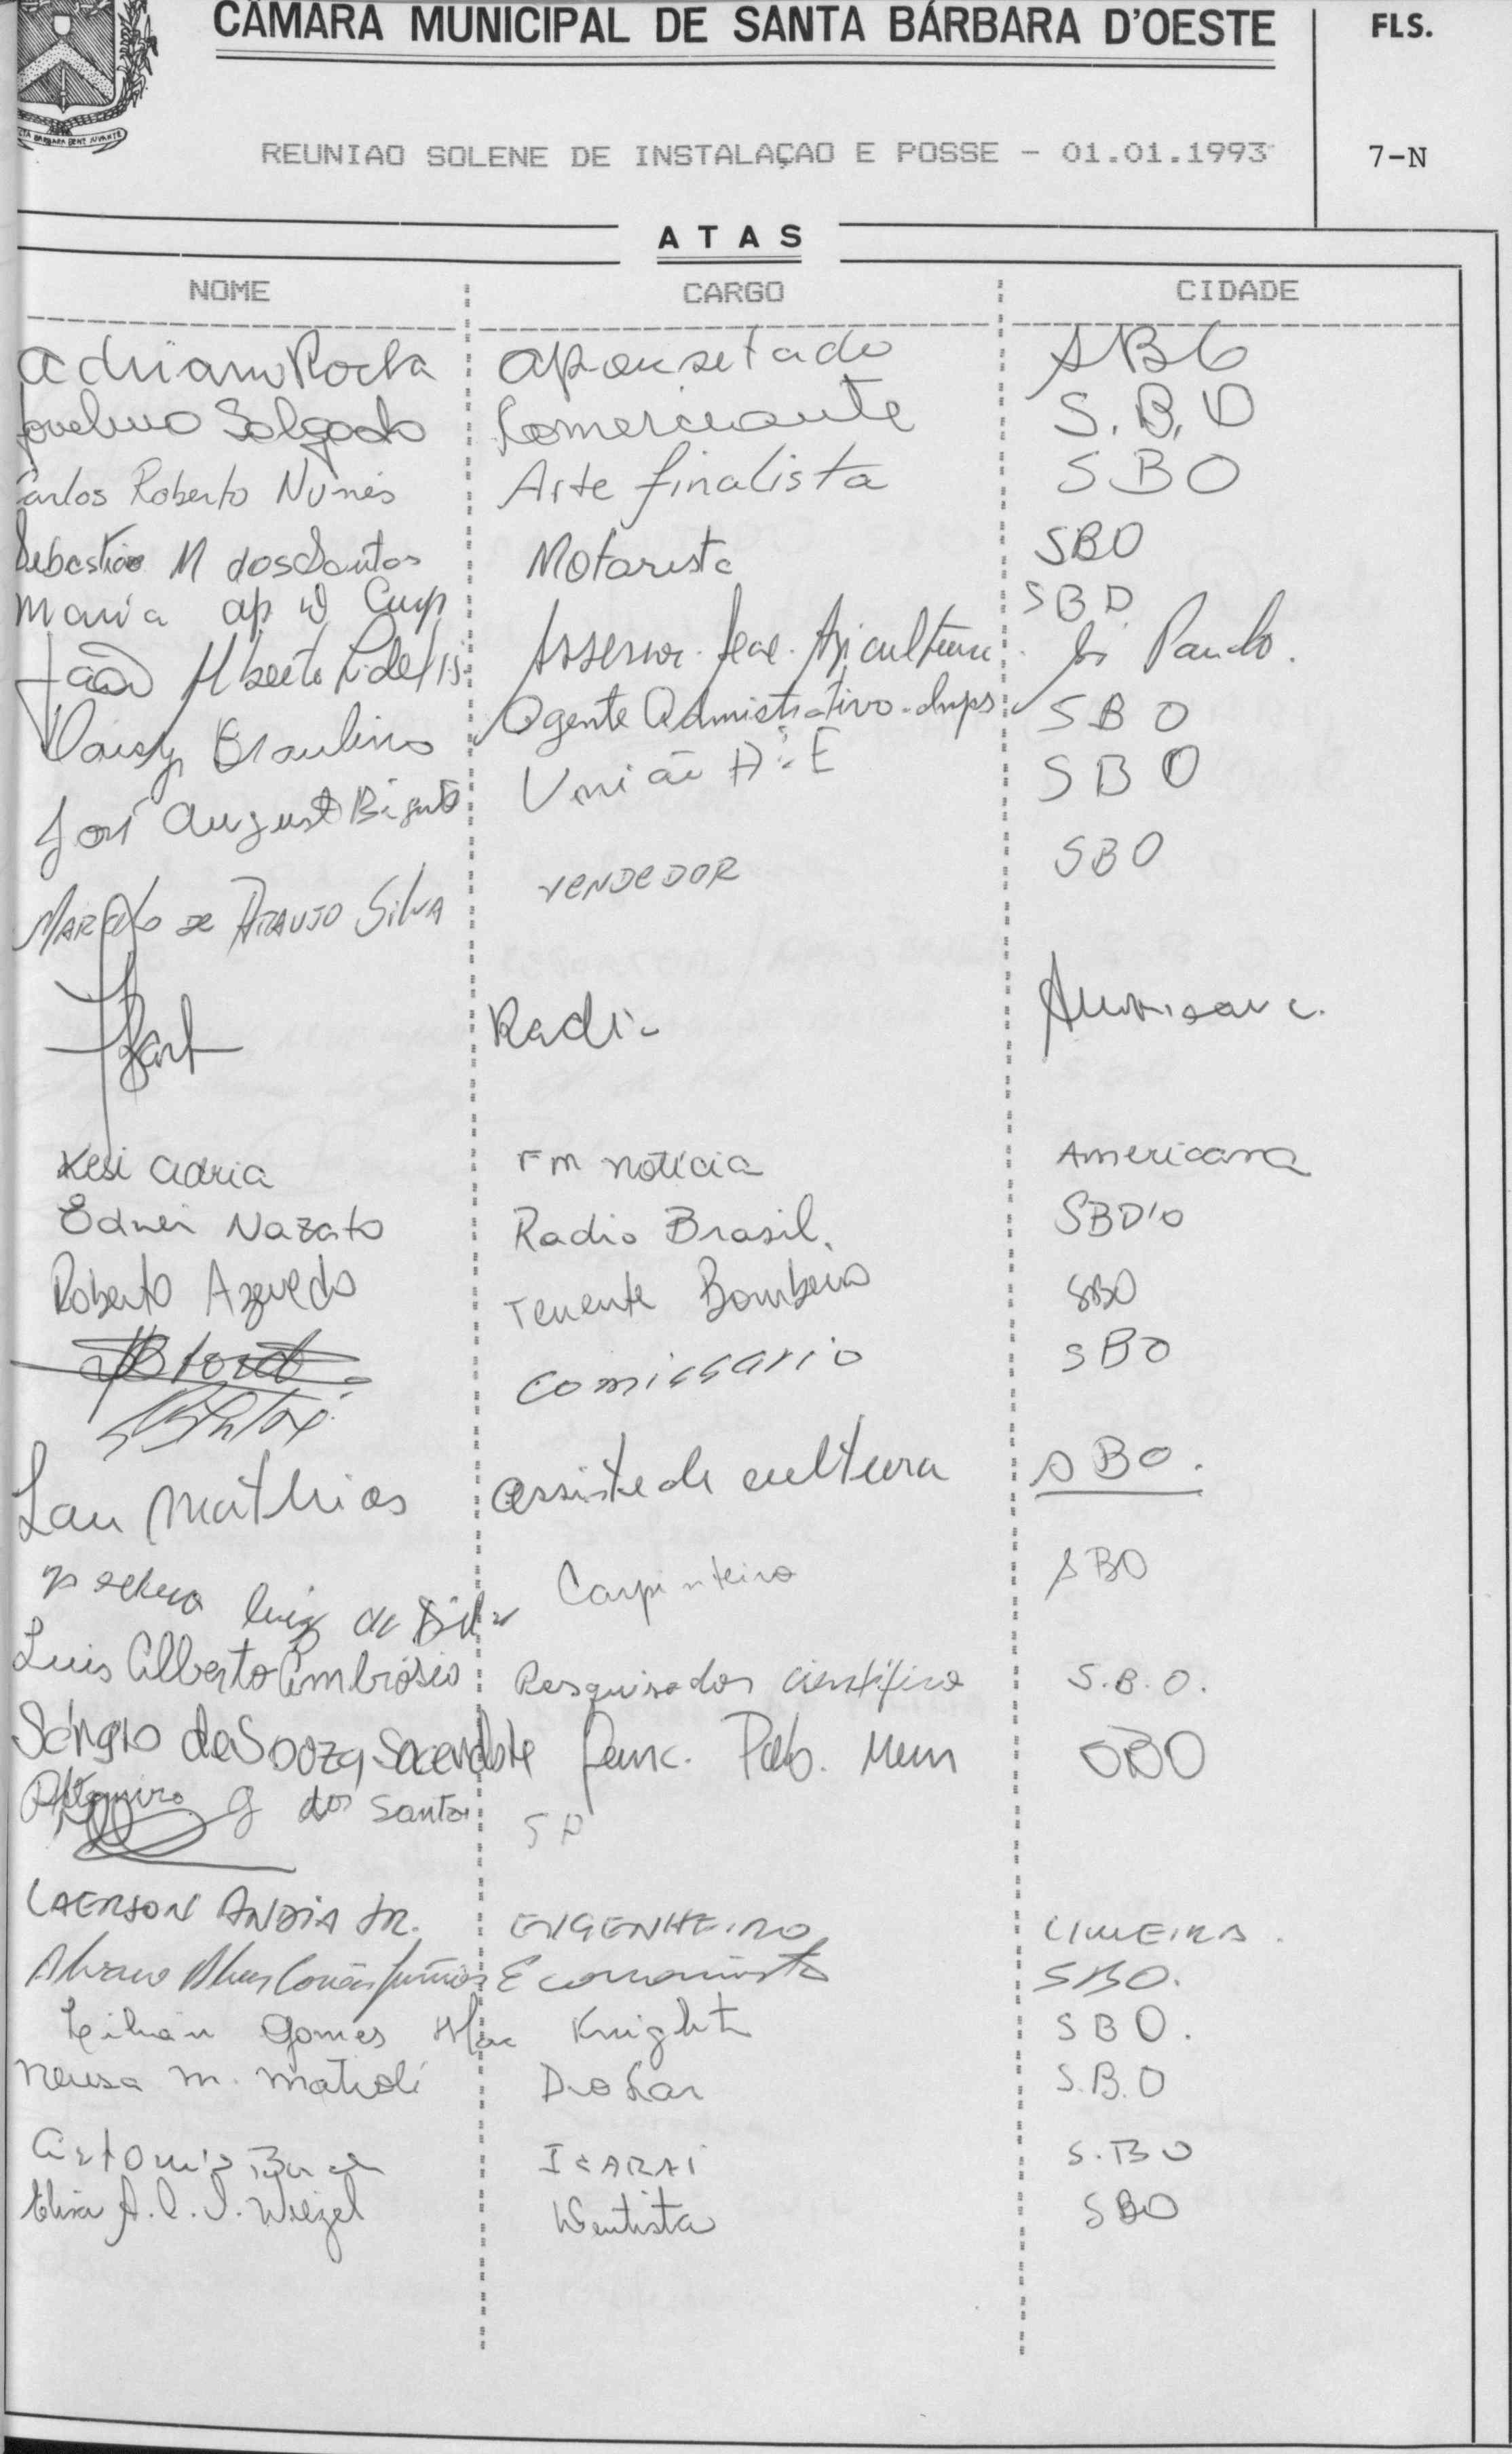 CÂMARA MUNICIPAL DE SANTA BÁRBARA D'OESTE FLS.
REUNIAO SOLENE DE INSTALAÇAO E POSSE - 01.01.1993 7-N
ATAS
NOME CARGO CIDADE
Adriano Rocha apousetado SBO
Jovelino Salgado Comerciante S.B.O
Carlos Roberto Nunes Arte finalista SBO
Sebastião M dos Santos Motorista SBO
Maria ap SBO
João Alberto Fidelis Assessor Agicultura São Paulo.
Daisy Braulino Agente Admistrativo - Inps SBO
José Augusto União SBO
MARCELO DE ARAUJO SILVA VENDEDOR SBO
Radio Americana.
Kesi Adria FM noticia Americana
Ednei Nazato Radio Brasil. SBD'O
Roberto Azevedo Tenente Bombeiro SBO
Comissario SBO
Lau Mathias assiste de cultura SBO.
luiz da Silva Carpinteiro SBO
Luis Alberto Ambrósio Pesquisador Científico S.B.O.
Sérgio de Souza Sacerdote func. Pub. Mun SBO
dos Santos SP
LAERSON ANDIA JR. ENGENHEIRO LIMEIRA.
Alvaro Alves Corrêa Junior Economista SBO.
Gomes Mac Knight SBO.
Neusa M. Matioli Do Lar S.B.O
Antonio ICARAI S.BO
Elisa A. C. S. Wiezel Dentista SBO